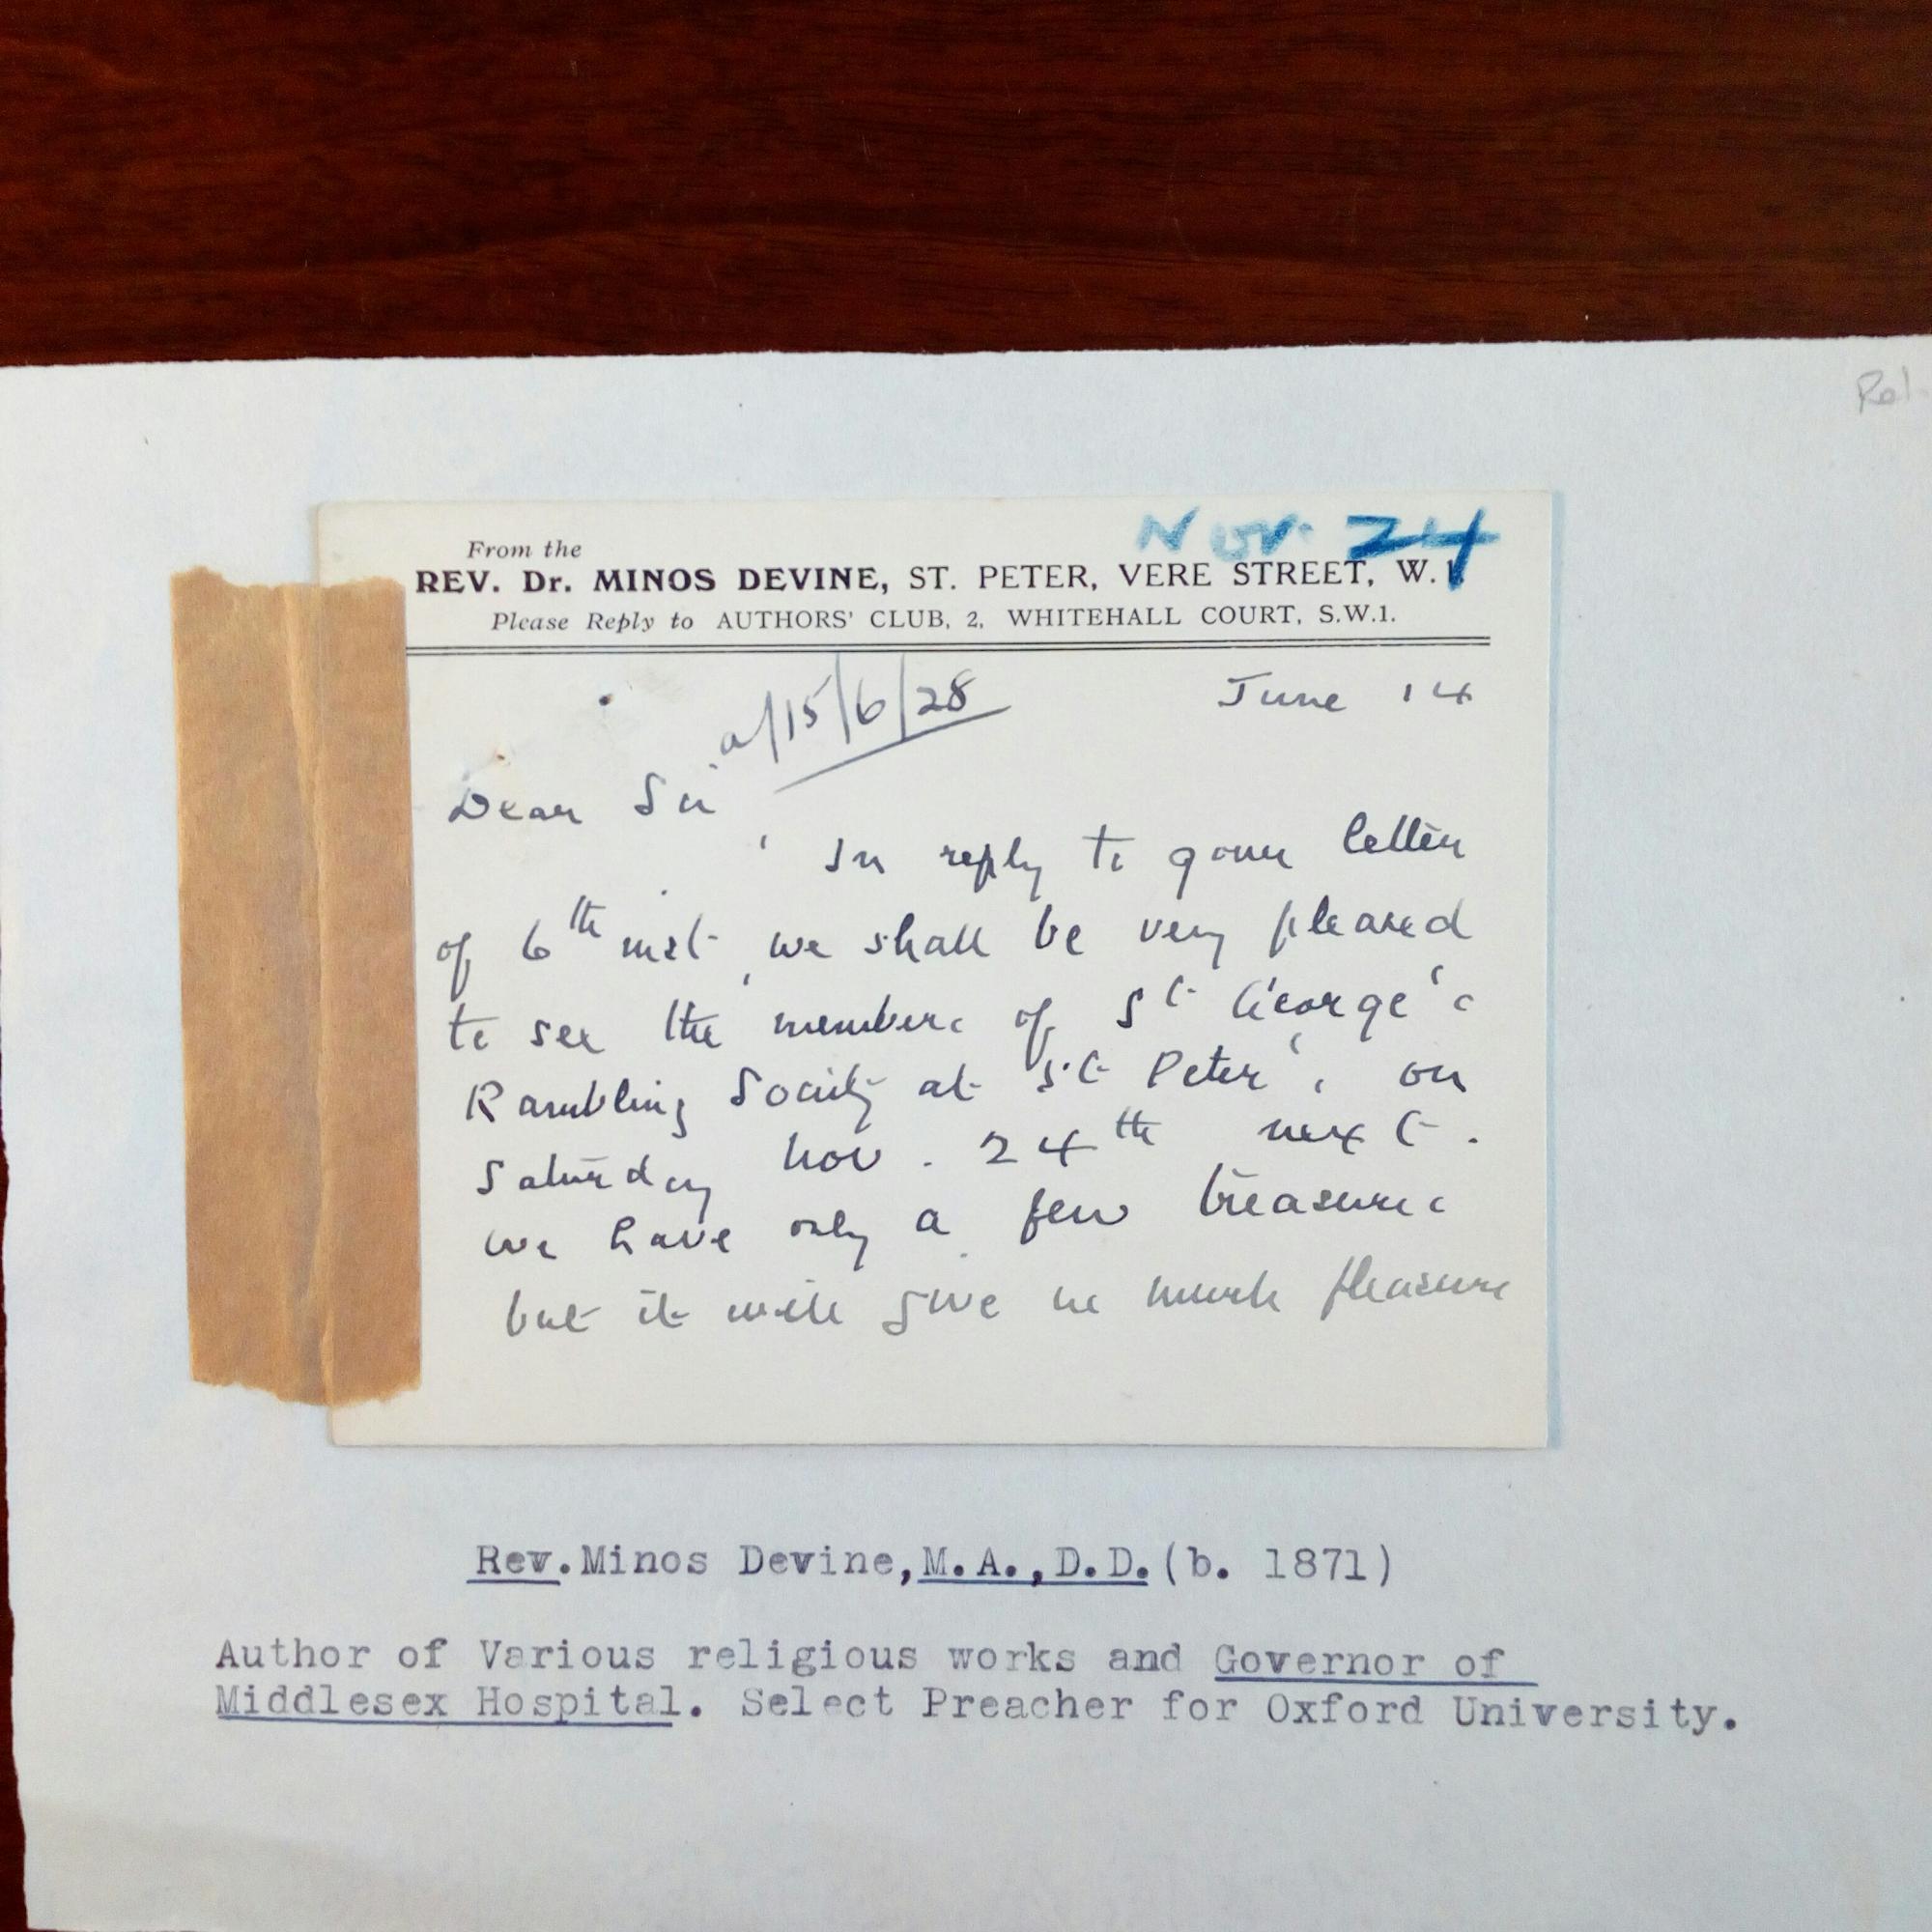 Rel.
Nov. 24
From the
REV. Dr. MINOS DEVINE, ST. PETER, VERE STREET, W.1
Please Reply to AUTHORS' CLUB, 2, WHITEHALL COURT, S.W.1.
a/15/6/28
June 14
Dear Sir
In reply to your letter
of 6th inst. we shall be very pleased
to see the members of St George's
Rambling Society at St Peter's on
Saturday Nov. 24th next.
We have only a few treasures
but it will give us much pleasure
Rev.Minos Devine,M.A.,D.D.(b. 1871)
Author of Various religious works and Governor of
Middlesex Hospital. Select Preacher for Oxford University.